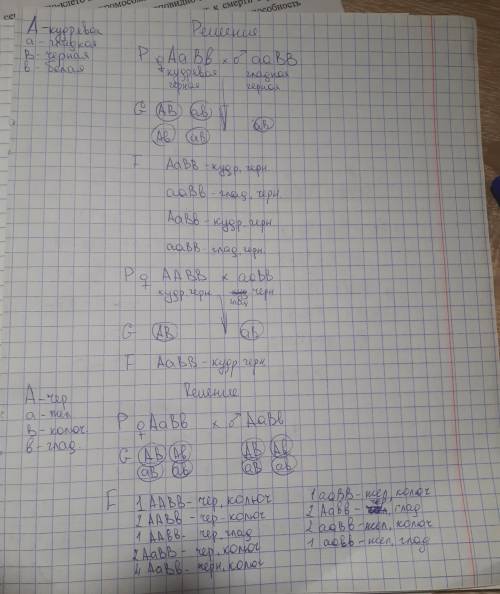 А-кудрявая
а-гладкая
В-черная
в-белая
Решение
Р ♀ АаВв × ♂ ааВВ
кудрявая гладкая
черная черная
G АВ аВ
Ав ав аВ
F АаВВ-кудр. черн.
ааВв-глад. черн.
АаВв-кудр. черн.
ааВВ-глад. черн.
Р ♀ ААВВ × ааВВ
кудр. черн черн
G АВ аВ
F АаВВ-кудр. черн
А-чер
а-жел
В-колюч
в-глад.
Решение
Р ♀ АаВв × ♂ АаВв
G АВ Ав АВ Ав
аВ ав аВ ав
F 1 ААВВ-чер, колюч
2 ААВв-чер-колюч
1 ААвв-чер. глад
2 АаВВ-чер, колюч
4 АаВв-черн, колоч
1 ааВВ-жел, колюч
2 Аавв- глад
2 ааВв-жел, колюч
1 аавв-жел, глад